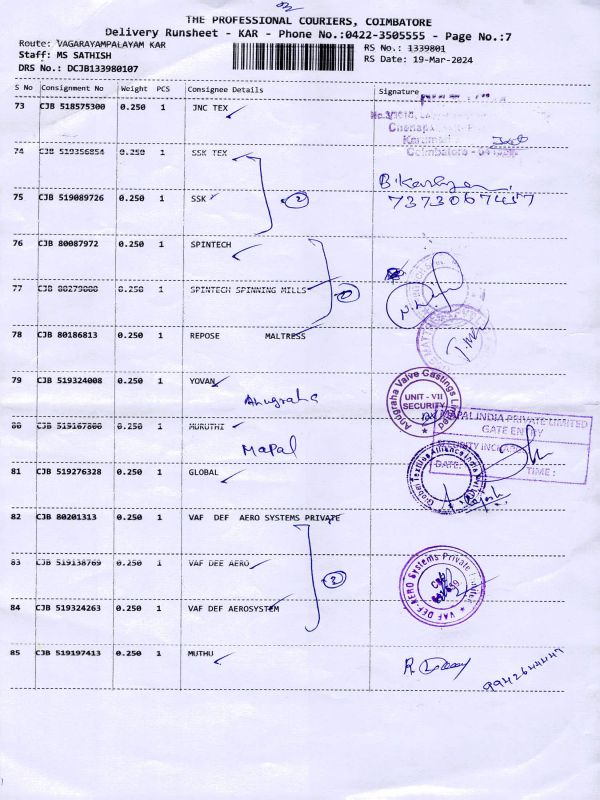 THE PROFESSIONAL COURIERS, COIMBATORE
Delivery Runsheet - KAR - Phone No.:0422-3505555 - Page No.:7
Route: VAGARAYAMPALAYAM KAR
RS No.: 1339801
Staff: MS SATHISH
RS Date: 19-Mar-2024
DRS No.: DCJB133980107
S No Consignment No Weight PCS Consignee Details Signature
73 CJB 518575300 0.250 1 JNC TEX
74 CJB 519356854 0.250 1 SSK TEX
75 CJB 519089726 0.250 1 SSK 2
7373067457
76 CJB 80087972 0.250 1 SPINTECH
77 CJB 80279888 0.250 1 SPINTECH SPINNING MILLS
78 CJB 80186813 0.250 1 REPOSE MALTRESS
79 CJB 519324008 0.250 1 YOVAN
Anugraha
Anugraha Valve Castings Limited
UNIT - VII
SECURITY
80 CJB 519167800 0.250 1 MURUTHI
Mapal
MAPAL INDIA PRIVATE LIMITED
GATE ENTRY
DATE:
TIME :
81 CJB 519276328 0.250 1 GLOBAL
Global Textiles Alliance India
82 CJB 80201313 0.250 1 VAF DEF AERO SYSTEMS PRIVATE
83 CJB 519138769 0.250 1 VAF DEE AERO
VAF DEF AERO Systems Private Limited
84 CJB 519324263 0.250 1 VAF DEF AEROSYSTEM
85 CJB 519197413 0.250 1 MUTHU
9942644447